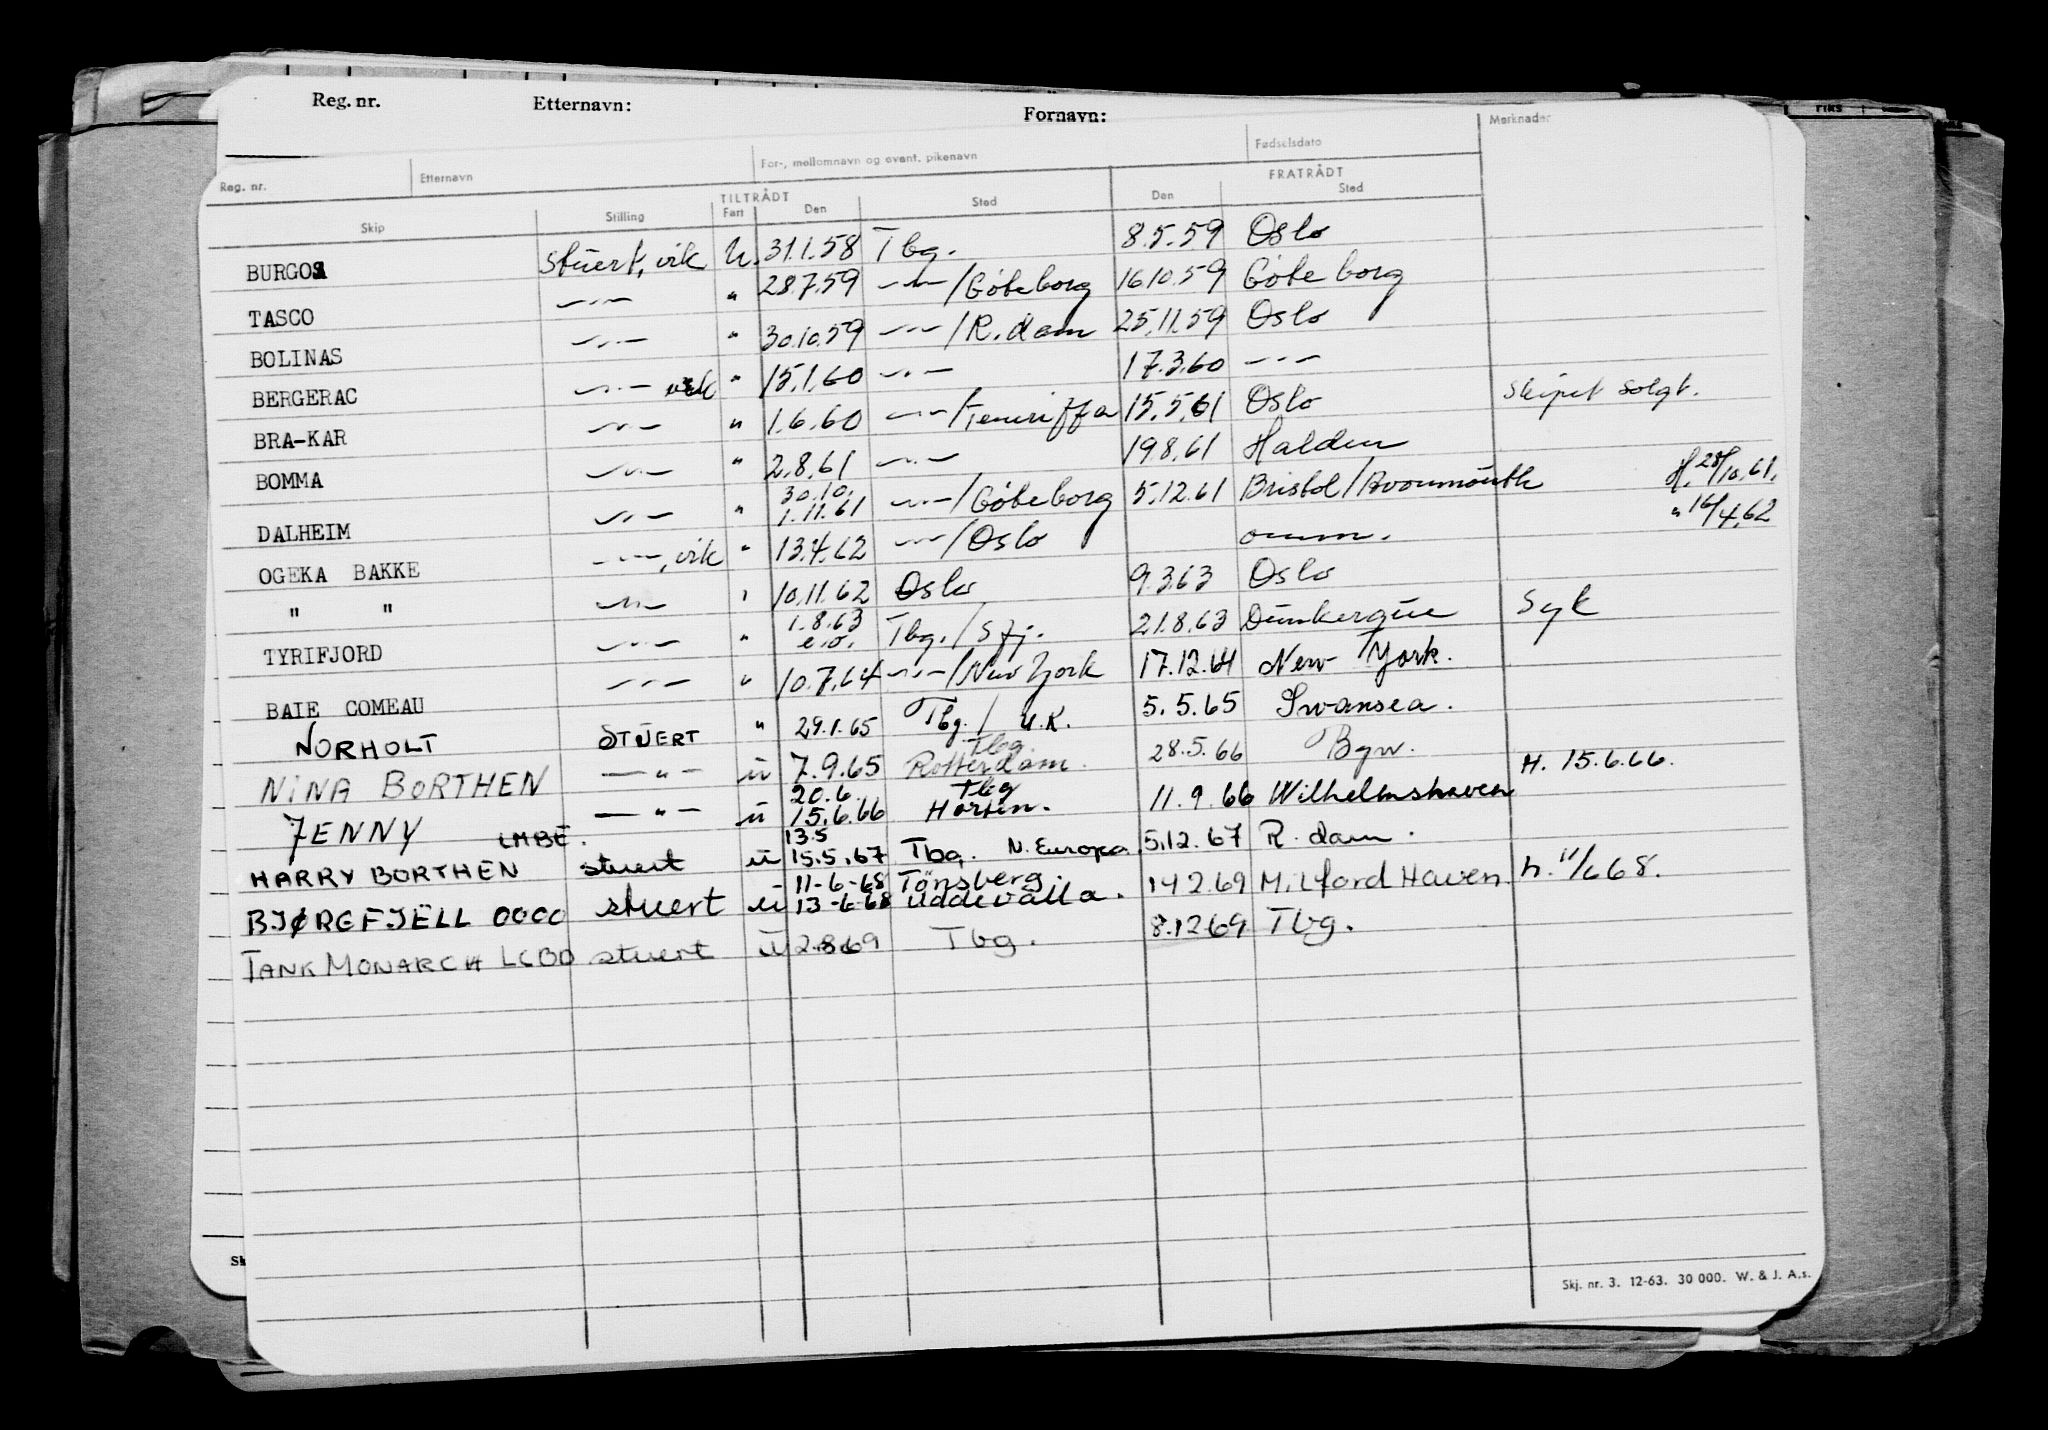 Reg. nr. Etternavn: Fornavn:
Reg. nr. Etternavn For-, mellomnavn og event. pikenavn Fødselsdato Merknader
TILTRÅDT FRATRÅDT
Skip Stilling Fart Den Sted Den Sted
BURGOS stuert, vik U. 31.1.58 Tbg. 8.5.59 Oslo
TASCO —"— " 28.7.59 —"—/Göteborg 16.10.59 Göteborg
BOLINAS —"— " 30.10.59 —"—/R.dam 25.11.59 Oslo
BERGERAC —"— vik " 15.1.60 —"— 17.3.60 —"—
BRA-KAR —"— " 1.6.60 —"—/Teneriffa 15.5.61 Oslo Skipet solgt.
BOMMA —"— " 2.8.61 —"— 19.8.61 Halden
DALHEIM —"— " 30.10. 1.11.61 —"—/Göteborg 5.12.61 Bristol/Avonmouth H. 28/10.61.
OGEKA BAKKE —"—, vik " 13.4.62 —"—/Oslo omm. " 16/4.62
" " —"— " 10.11.62 Oslo 9.3.63 Oslo
TYRIFJORD —"— " 1.8.63 e.o. Tbg./Sfj. 21.8.63 Dunkerque Syk
BAIE COMEAU —"— " 10.7.64 —"—/New York 17.12.64 New York.
NORHOLT STUERT " 29.1.65 Tbg./U.K. 5.5.65 Swansea.
NINA BORTHEN —"— u 7.9.65 Tbg. Rotterdam. 28.5.66 Bgw.
JENNY LMBE. —"— u 20.6 15.6.66 Tbg Horten. 11.9.66 Wilhelmshaven H. 15.6.66.
HARRY BORTHEN stuert u 13.5 15.5.67 Tbg. N. Europa. 5.12.67 R. dam.
BJØRGFJELL stuert u 11-6-68 13-6-68 Tönsberg. Uddevalla. 14 2.69 Milford Haven. h. 11/6 68.
TANK MONARCH LCBD stuert u 2.8.69 Tbg. 8.12.69 Tbg.
Skj. nr. 3. 12-63. 30 000. W. & J. A.s.